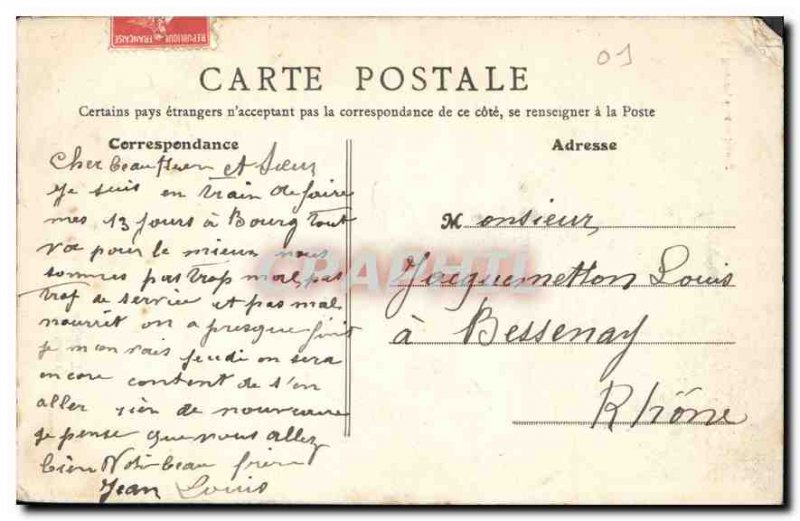 RÉPUBLIQUE FRANÇAISE
01
CARTE POSTALE
Certains pays étrangers n'acceptent pas la correspondance de ce côté, se renseigner à la Poste
Correspondance
Cher beau frere et Sœur
Je suis en train de faire
mes 13 jours à Bourg tout
va pour le mieux nous
sommes pas trop mal, pas
trop de service et pas mal
nourrit on a presque finit
je m'en vais jeudi on sera
encore content de s'en
aller rien de nouveau
je pense que vous allez
bien Notre beau frère
Jean Louis
Adresse
Monsieur,
Jacquemetton Louis
à Bessenay
Rhône